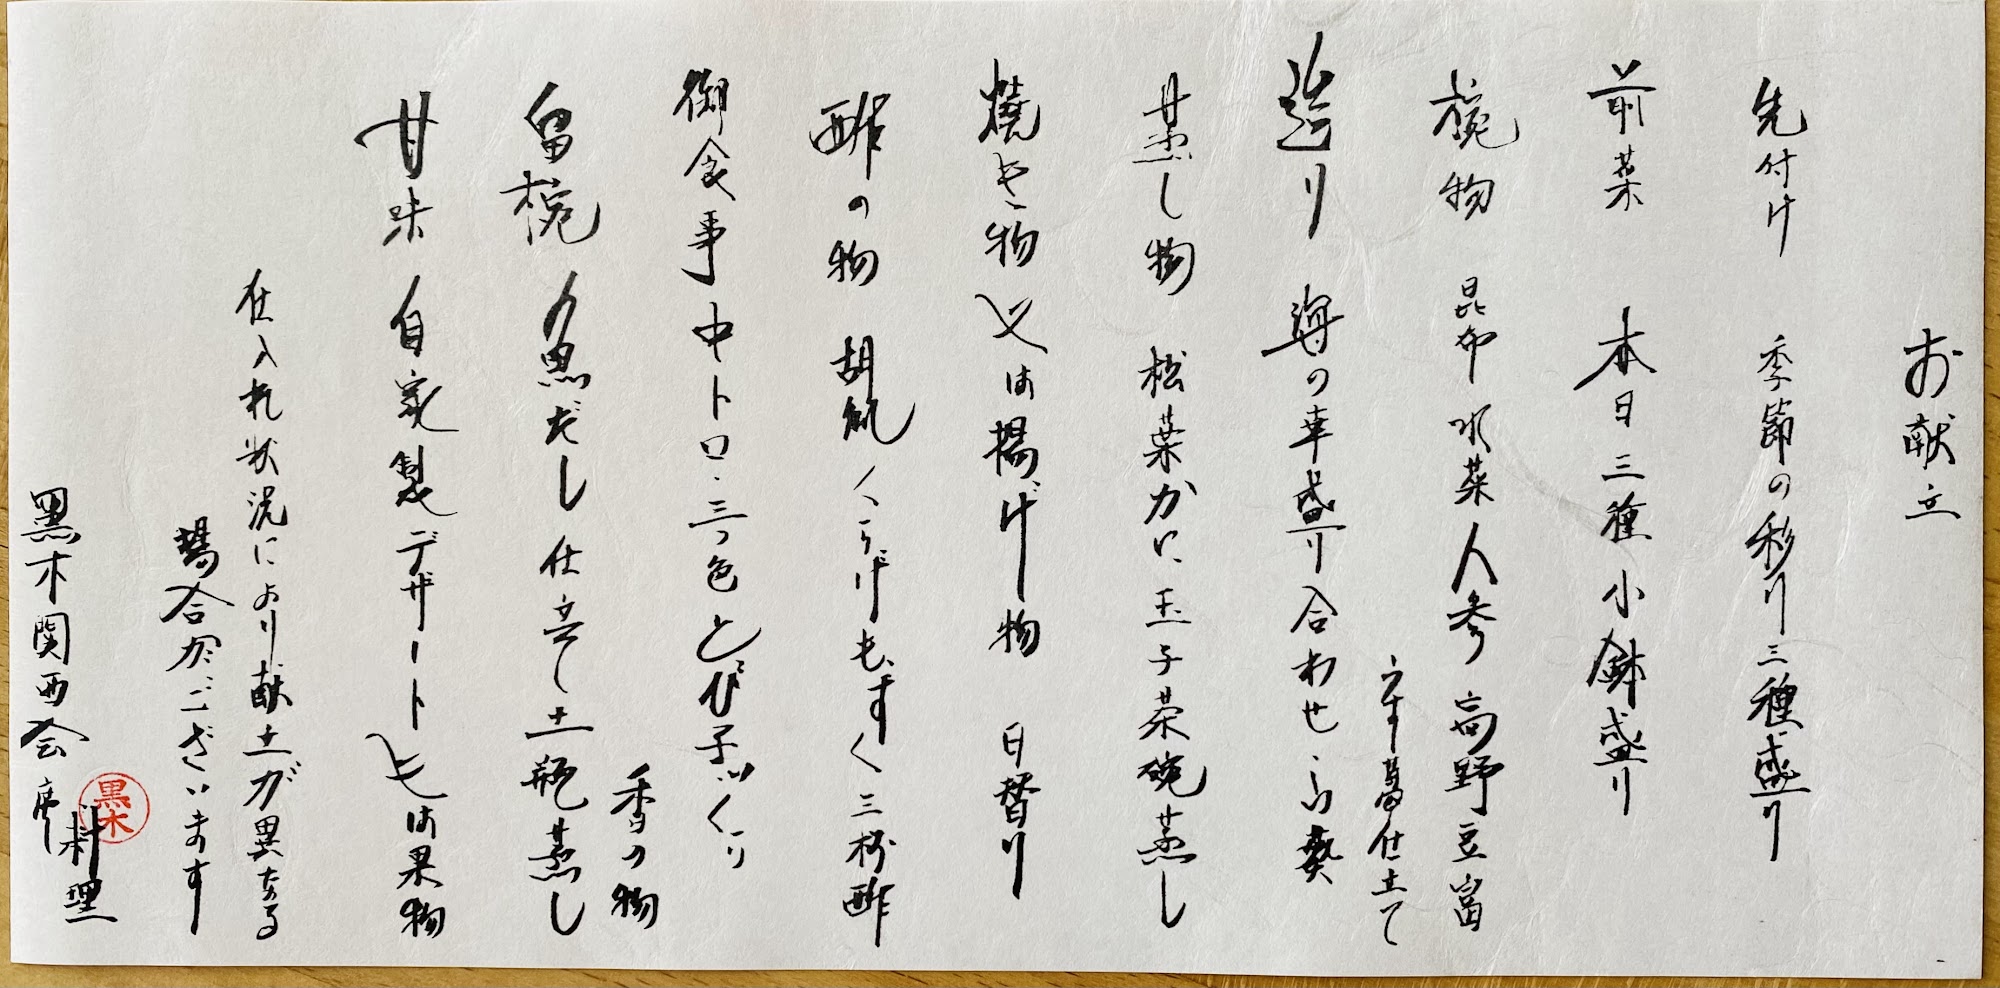 お献立
先付け 季節の彩り三種盛り
前菜 本日三種小鉢盛り
椀物 昆布 水菜 人参 高野豆富
うす葛仕立て
造り 海の幸盛り合わせ
蒸し物 松葉かに玉子茶碗蒸し
焼き物又は揚げ物 日替り
酢の物 胡瓜 くらげ もずく 三杯酢
御食事 中トロ 三つ色 とび子 つくり
香の物
留椀 魚だし仕立て土瓶蒸し
甘味 自家製デザート又は果物
仕入れ状況により献立が異なる
場合がございます
黒木関西会席料理
黒木